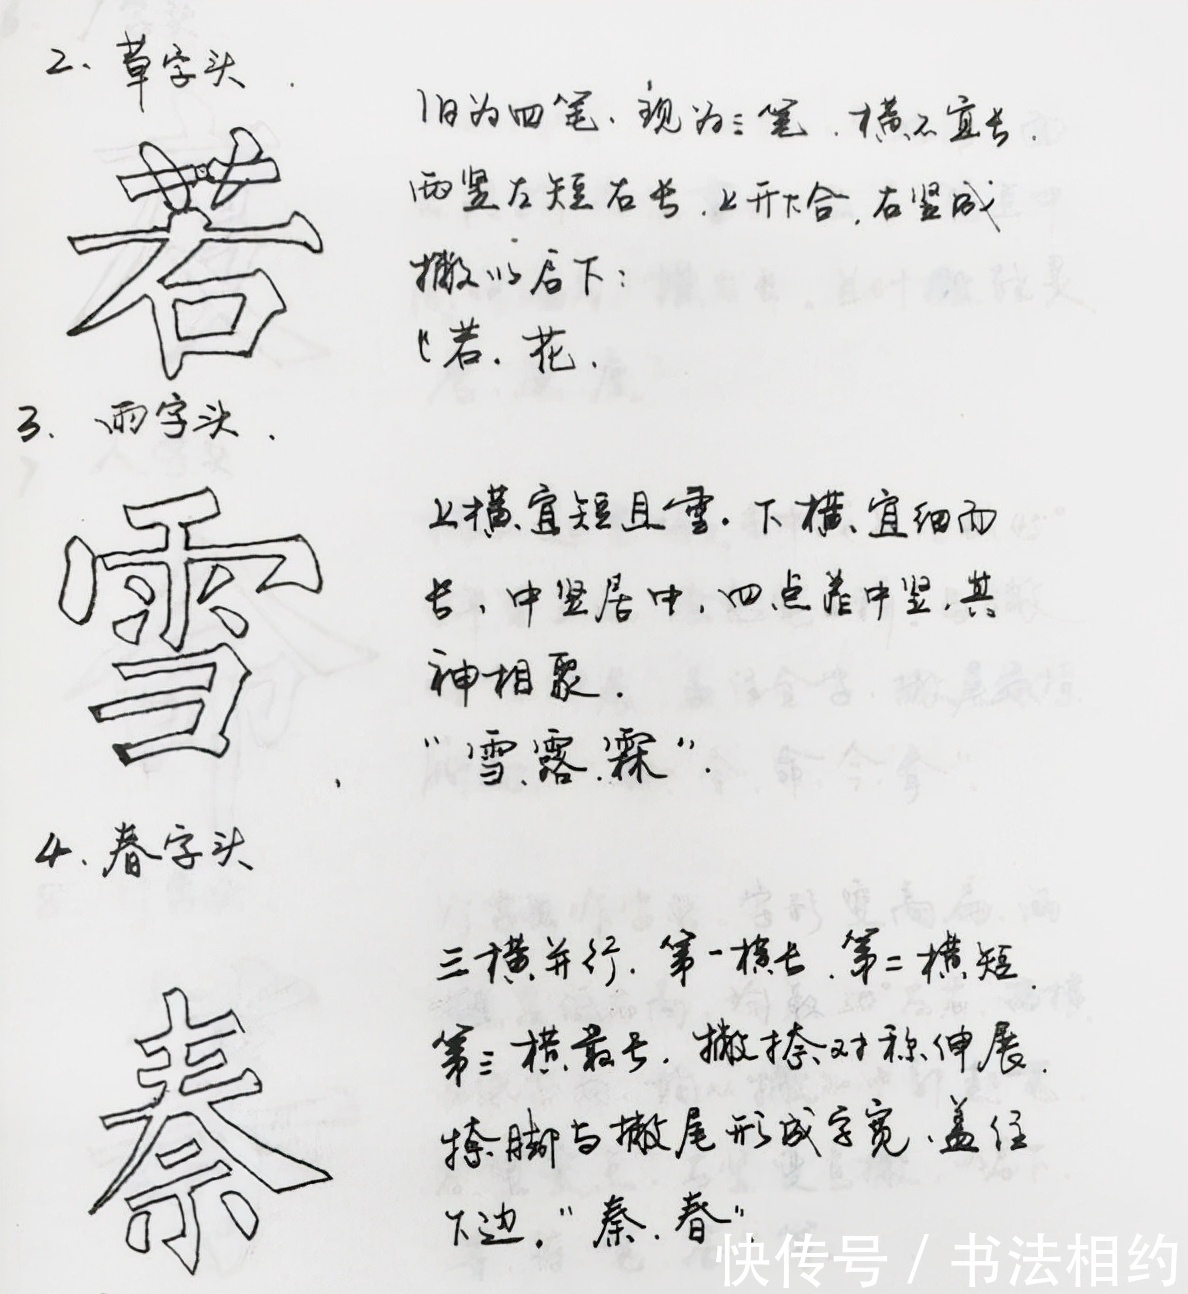 2、草字头.
若
旧为四笔、现为三笔、横不宜长.
两竖左短右长、上开下合、右竖成
撇以后下:
"若、花.
3、雨字头.
雪
上横宜短且重、下横宜细而
长、中竖居中、四点靠中竖、其
神相聚.
"雪、露、霖".
4、春字头
秦
三横并行、第一横长、第二横短、
第三横最长、撇捺对称伸展.
捺脚与撇尾形成字宽、盖住
下边。"秦、春".
快传号 / 书法相约